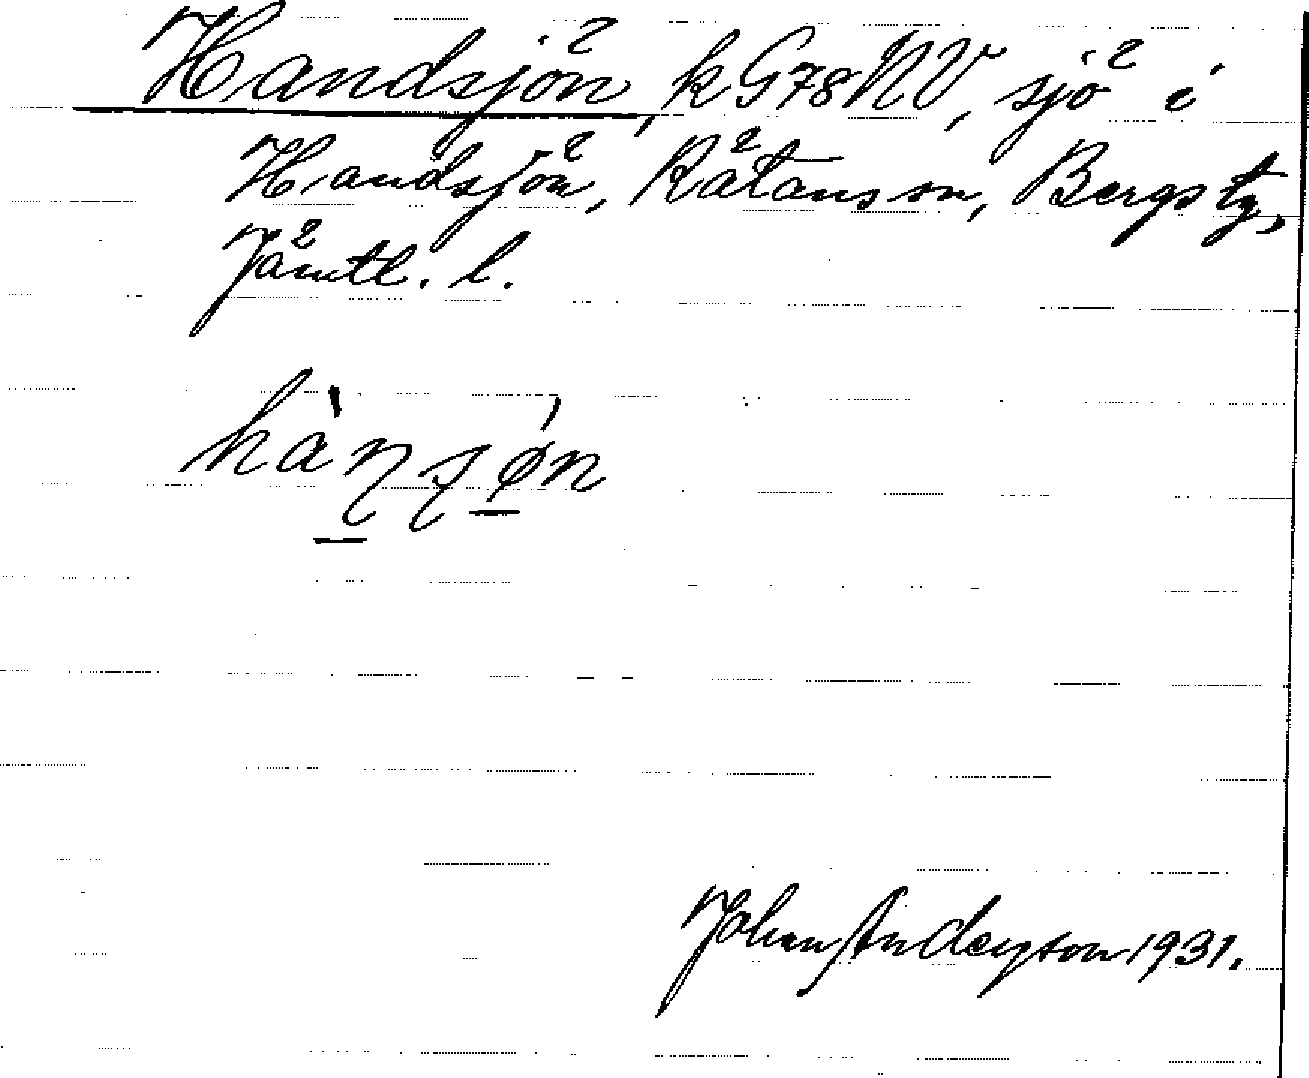 Handsjön, k G78NV, sjö i
Handsjön, Rätans sn, Bergs tg,
Jämtl. l.
hànsøn
Johan Anderson 1931.